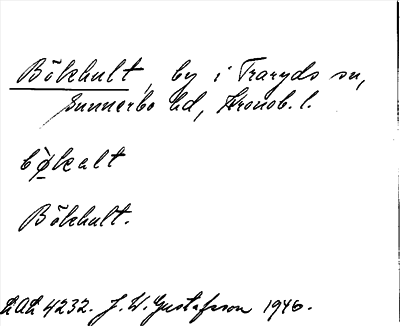 Bökhult, by i Traryds sn,
Sunnerbo hd, Kronob. l.
bø̀kalt
Bökhult.
LAL 4232. J. W. Gustafsson 1946.